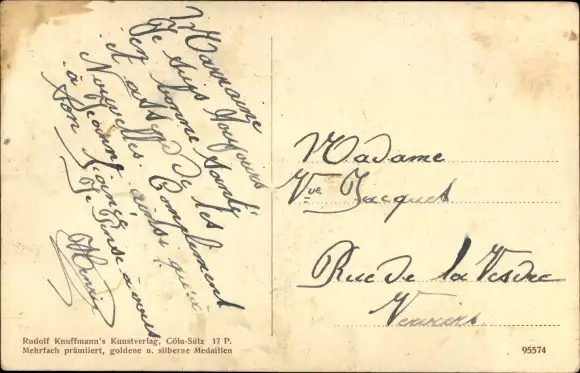 Marraine
Je suis toujours
en bonne santé
et de les
Nouvelles. Compliment
à Jeanne ainsi qu'à
Son Fiancé
Je Pense à vous
Henri
Madame
Vve Jacquet
Rue de la Vesdre
Verviers
Rudolf Knuffmann's Kunstverlag, Cöln-Sülz 17 P.
Mehrfach prämiiert, goldene u. silberne Medaillen
95574